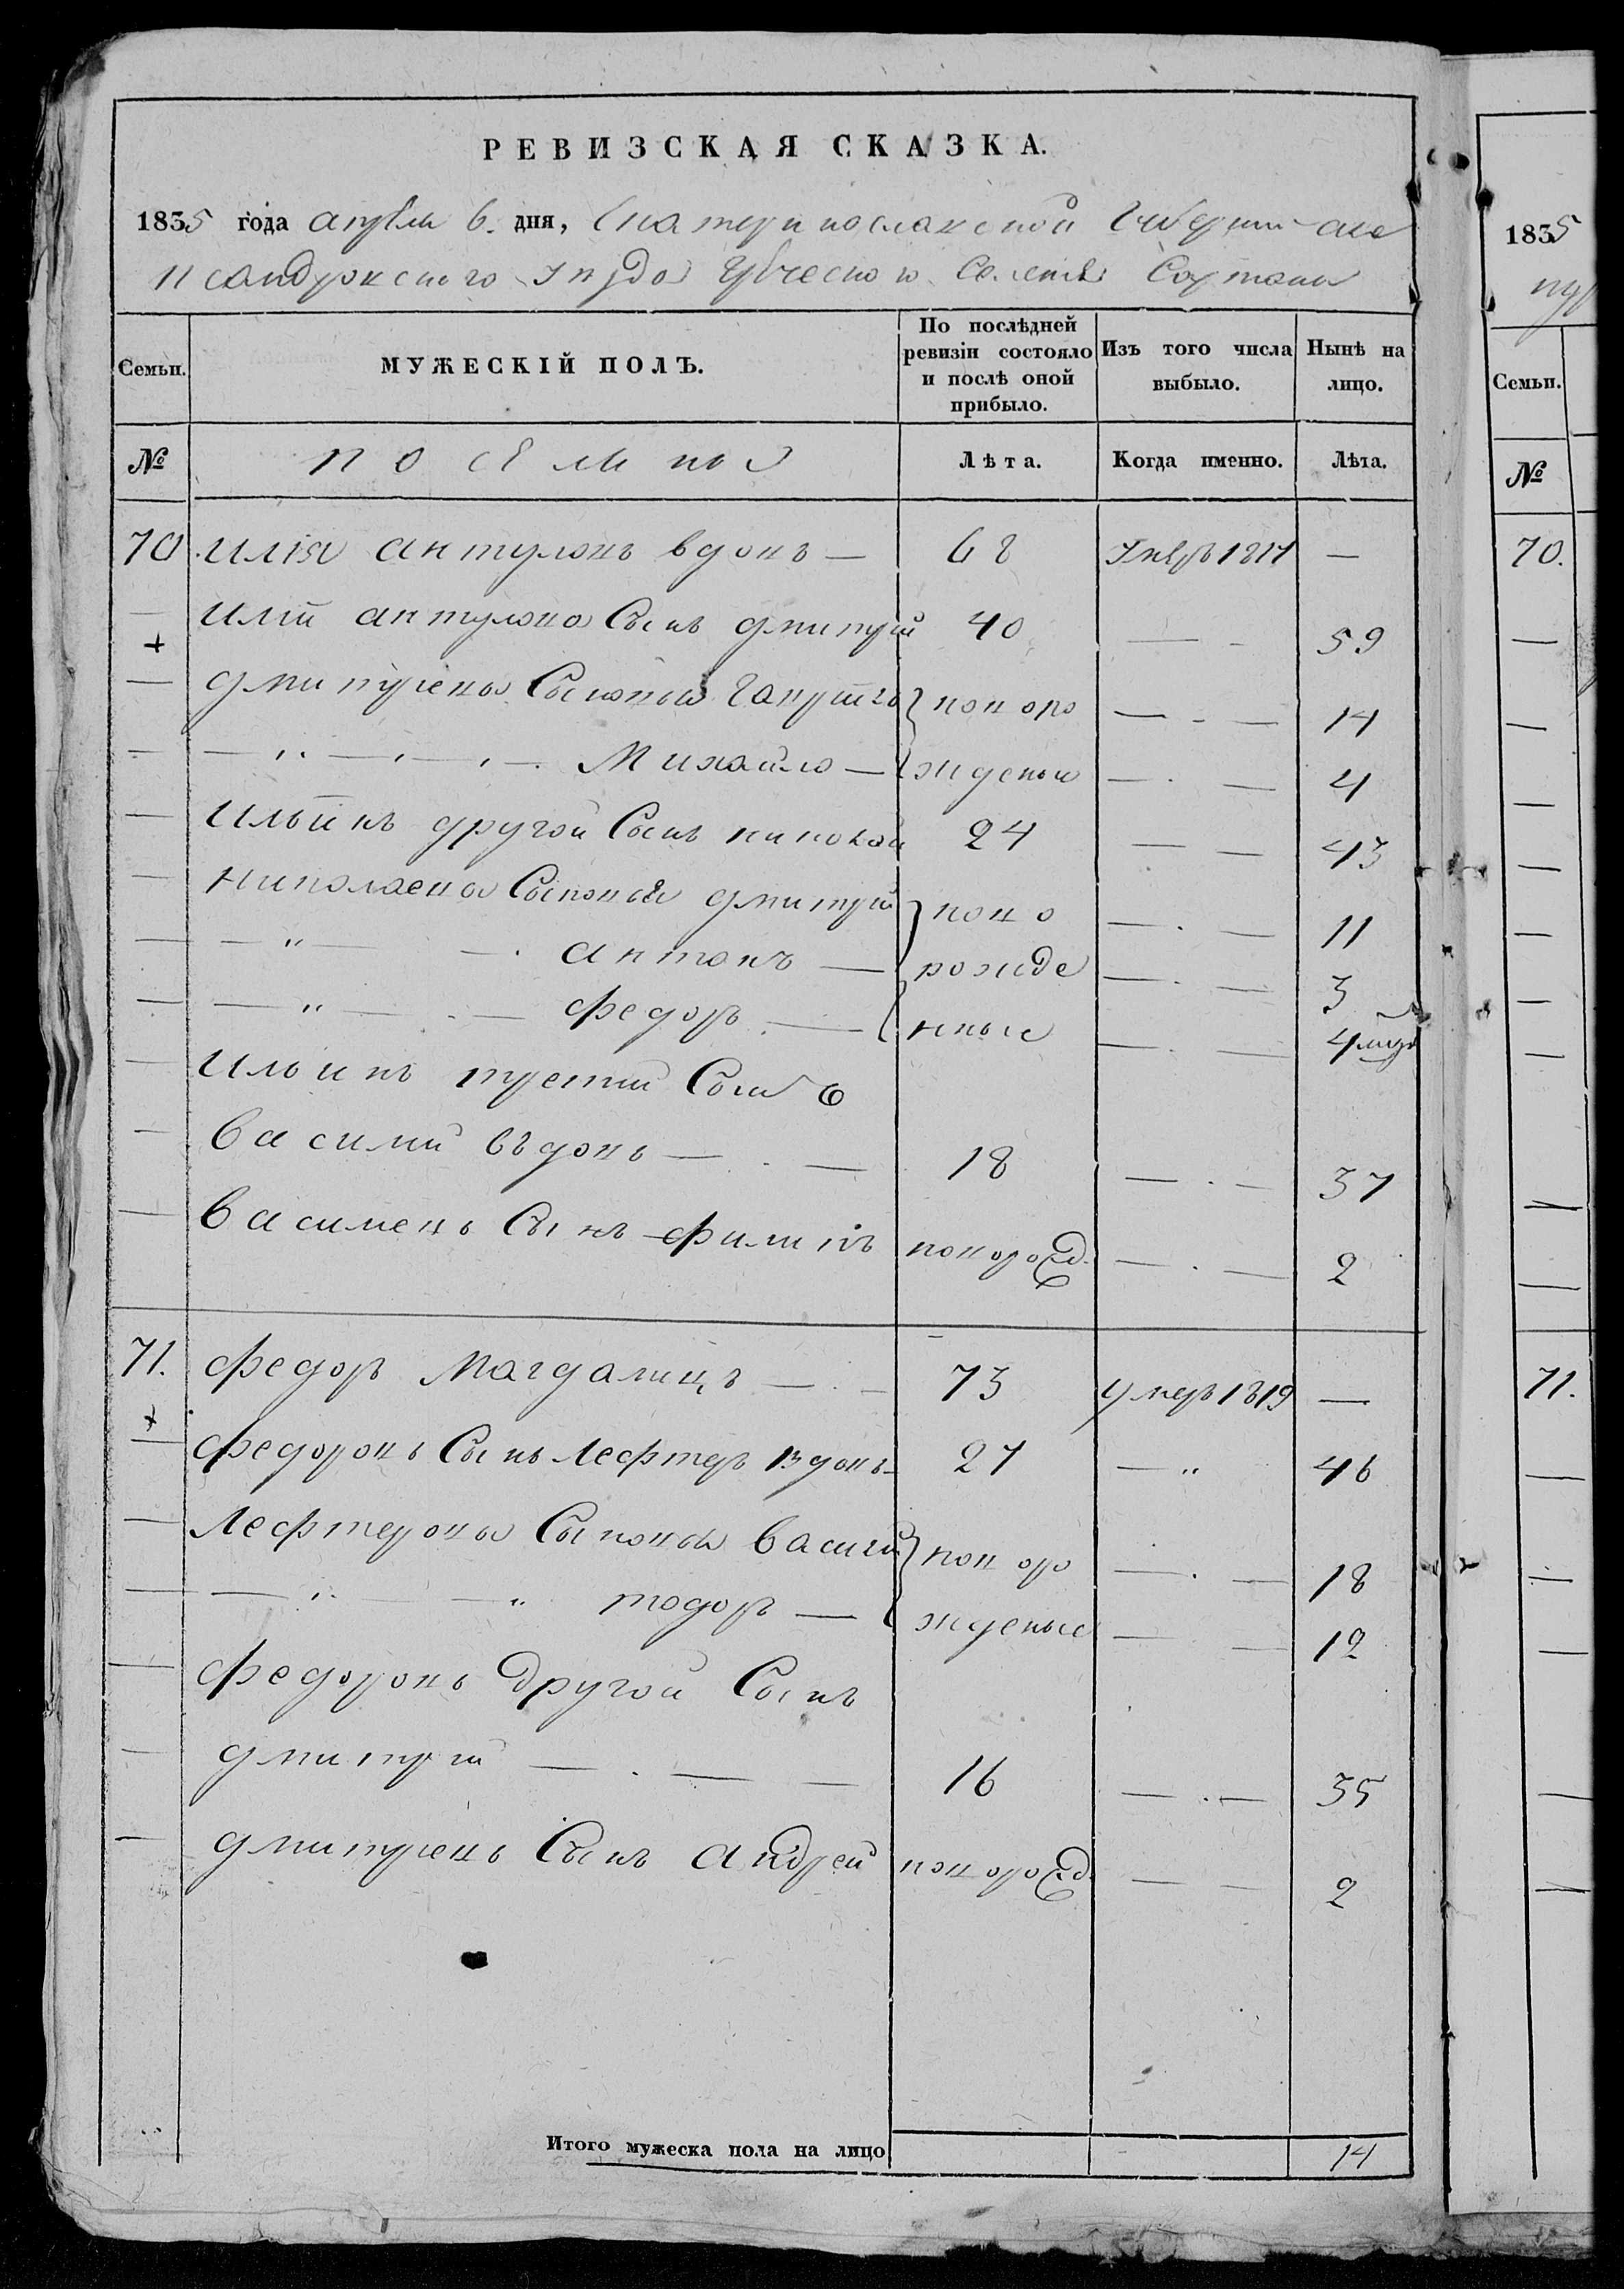 РЕВИЗСКАЯ СКАЗКА.
1835 года апреля 6. дня, Екатеринославской Губернии Але
ксандровского уезда Греческого Селения Сартаны
Семьи. МУЖЕСКІЙ ПОЛЪ. По послѣдней ревизіи состояло и послѣ оной прибыло. Изъ того числа выбыло. Нынѣ на лицо.
№ поселяне Лѣта. Когда именно. Лѣта.
70 илія антуловъ вдовъ — 68 умеръ 1817 —
иліи антулова Сынъ дмитрій 40 — - 59
дмитріевы Сыновья новоро — - — 14
— Михайло — жденые — . — 4
ильинъ другой Сынъ николай 24 — — 43
николаевы Сыновья дмитрій ново — . — 11
— " — . антонъ — рожде — . — 3
— " — . — федоръ — нные — . — 4 меся
ильинъ третий Сынъ
василий въдовъ — . — 18 — . — 37
василиевъ Сынъ филипъноworожд. — . — 2
71. федоръ Магдалицъ — . — 73 умеръ 1819 —
федоровъ Сынъ лефтеръ вдовъ — 27 — " 46
лефтеровы Сыновья василий новоро — . — 18
— " — — " тодоръ — жденые — — 12
федоровъ другой Сынъ
дмитрий — . — — 16 — . — 35
дмитриевъ Сынъ андрей новорожд. — — 2
Итого мужеска пола на лицо 14
1835
Семьи.
№
70.
71.